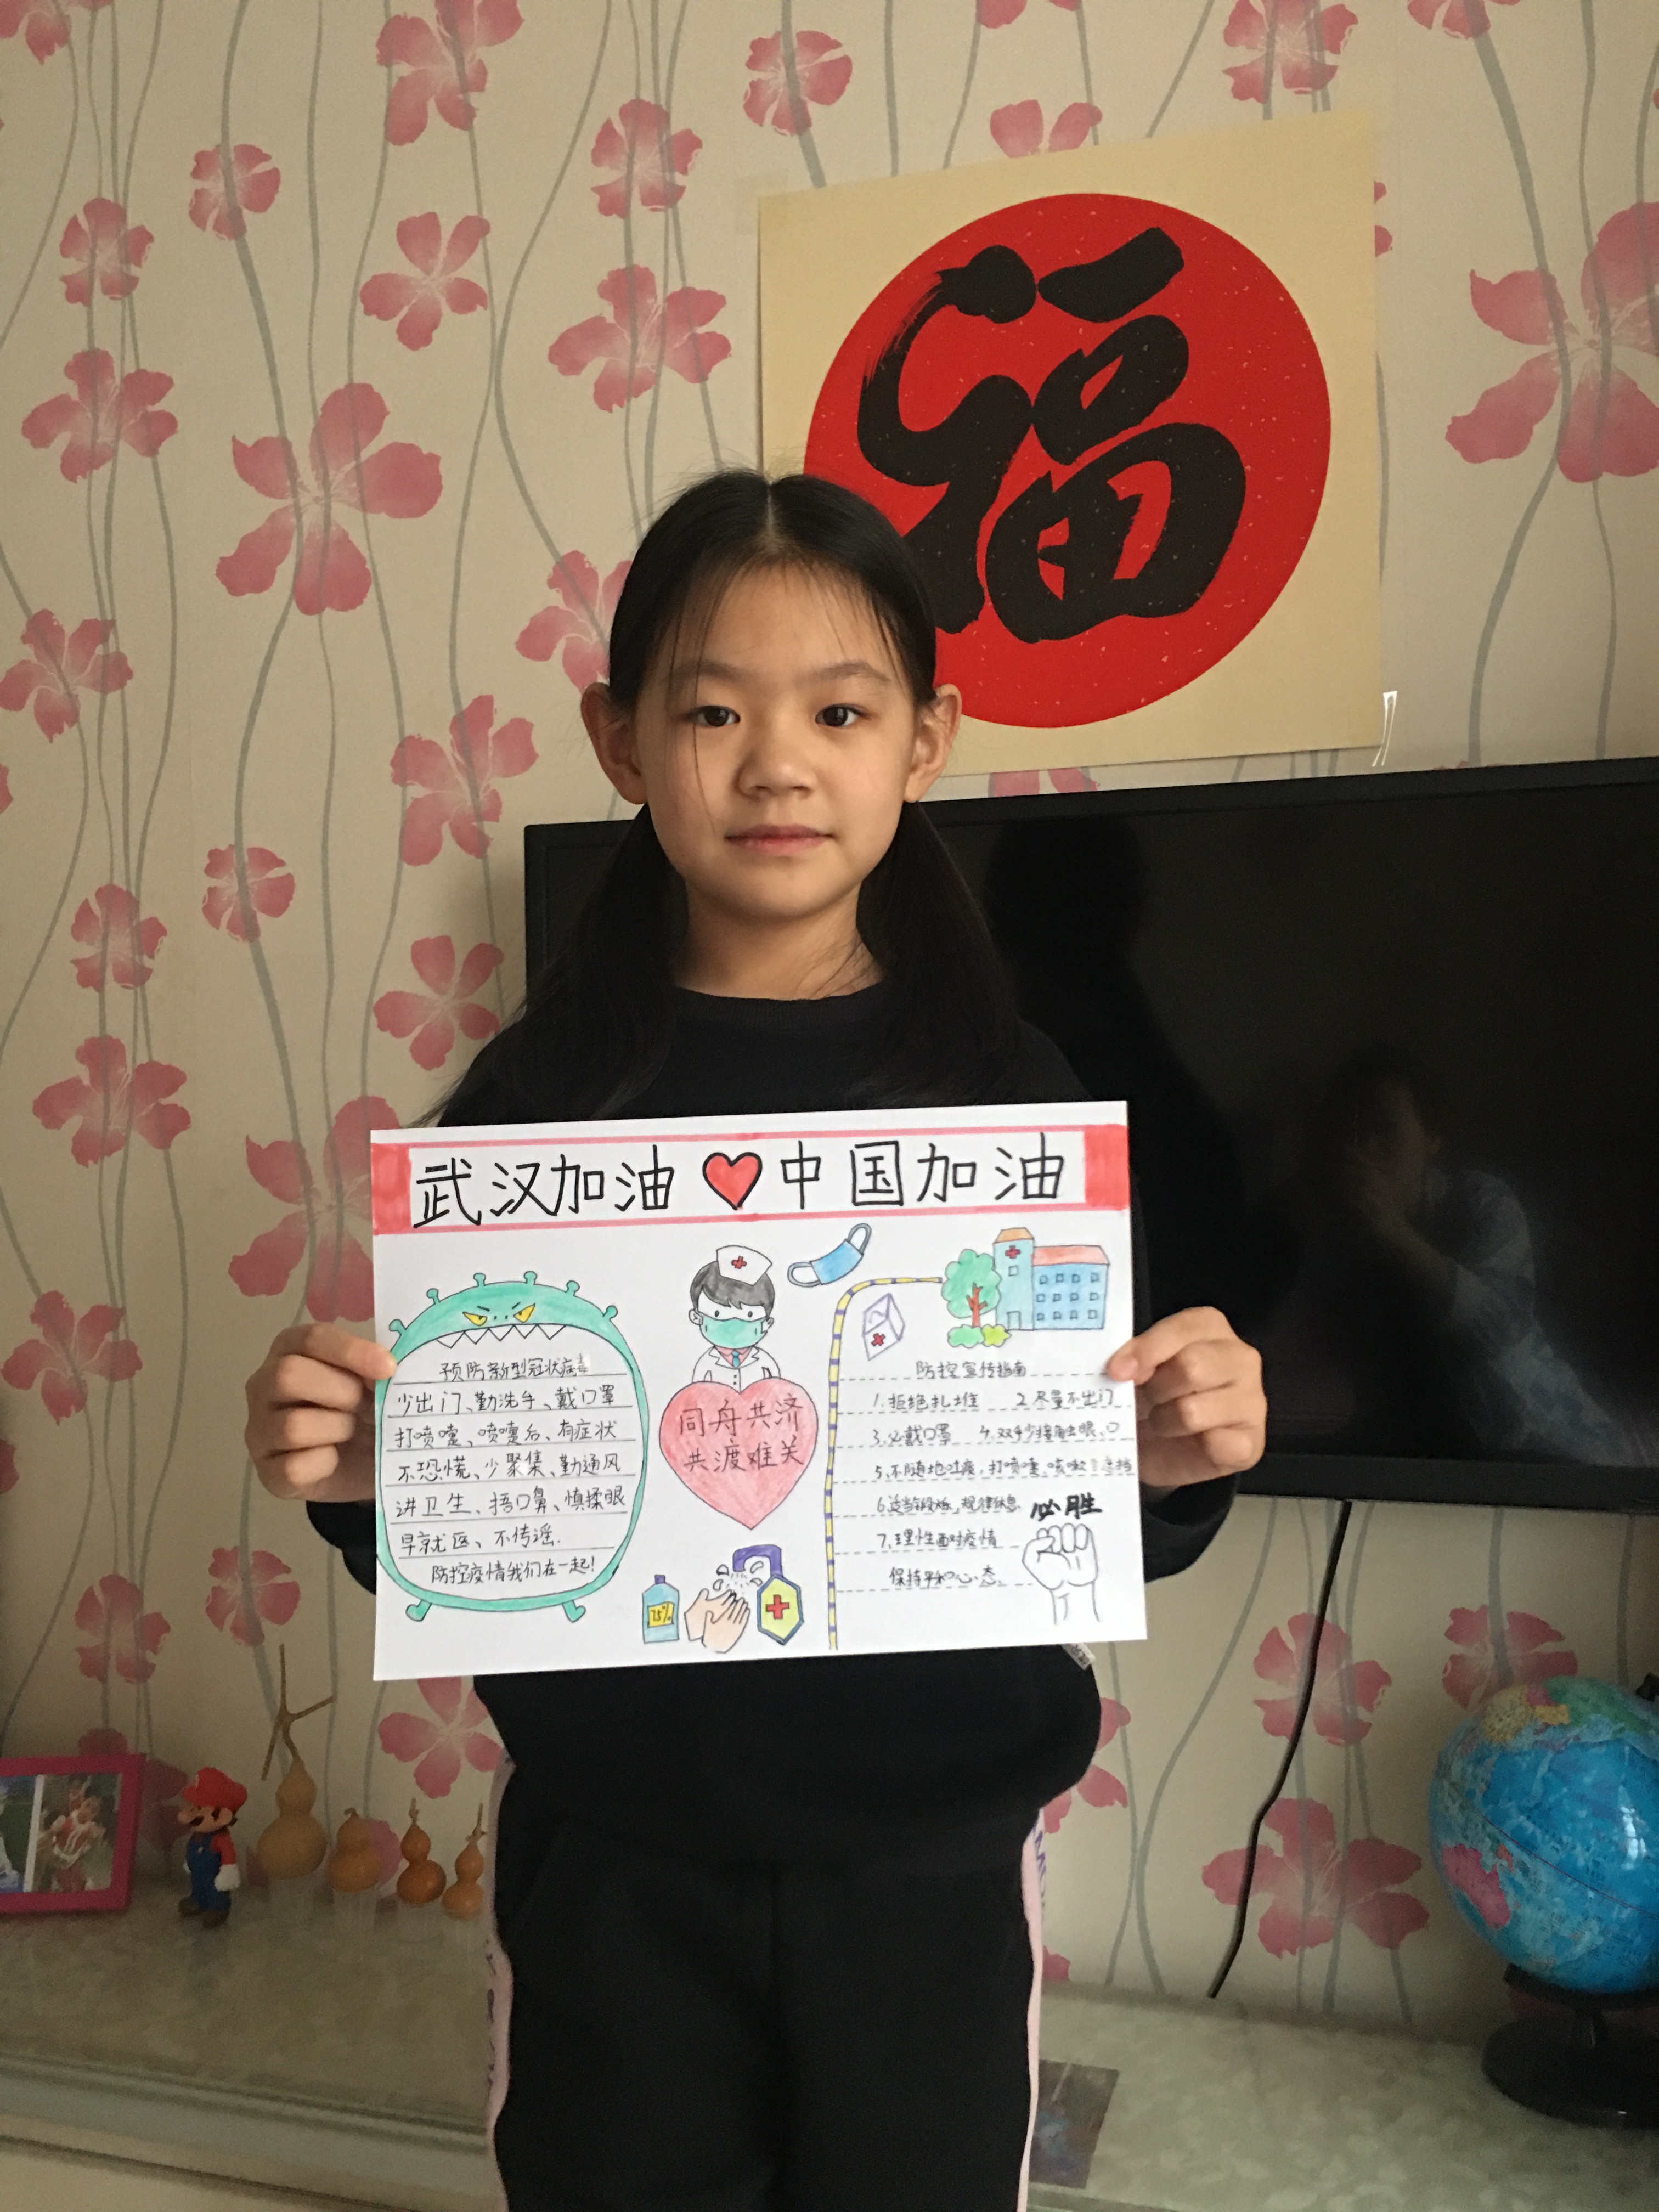 福
武汉加油 中国加油
预防新型冠状病毒
少出门、勤洗手、戴口罩
打喷嚏、喷嚏后、有症状
不恐慌、少聚集、勤通风
讲卫生、捂口鼻、慎揉眼
早就医、不传谣.
防控疫情我们在一起!
同舟共济
共渡难关
75%
防控宣传指南
1.拒绝扎堆 2.尽量不出门
3.必戴口罩 4.双手少接触眼、口
5.不随地吐痰,打喷嚏,咳嗽
6.适当锻炼,规律休息
必胜
7.理性面对疫情
保持平和心态。